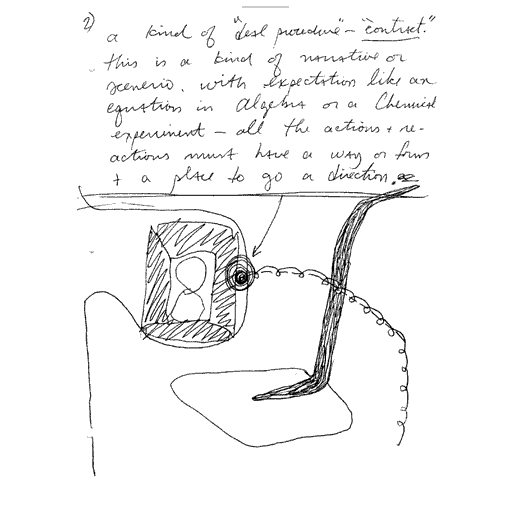 2)
a kind of "test procedure" – "contract."
this is a kind of narrative or
scenerio. with expectation like an
equation in Algebra or a Chemical
experiment – all the actions + re-
actions must have a way or form
+ a place to go a direction.